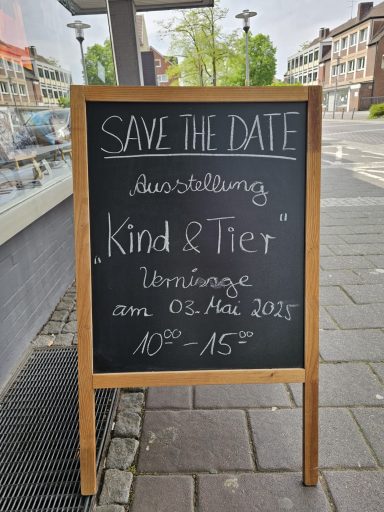 SAVE THE DATE
Ausstellung
„Kind & Tier"
Vernissage
am 03. Mai 2025
10⁰⁰ - 15⁰⁰